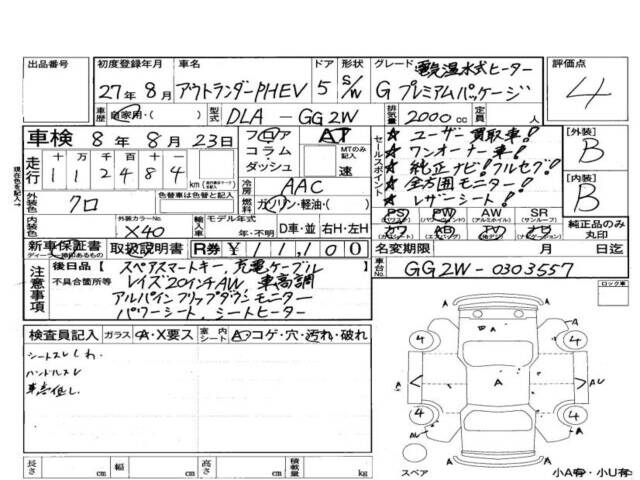 出品番号 初度登録年月 車名 ドア 形状 グレード 電気温水式ヒーター 評価点
27年8月 アウトランダーPHEV 5 S/W G プレミアムパッケージ 4
車歴 自家用・( ) 型式 DLA-GG2W 排気量 2000cc 定員 人
車検 8年8月23日 フロア AT セールスポイント ★ユーザー買取車!
走行 十万千百十 112484 km コラム MTのみ記入 ★ワンオーナー車! [外装] B
ダッシュ 速 ★純正ナビ!フルセグ!
外装色 クロ 色替車は色替と記入 冷房 AAC ★全方囲モニター! [内装] B
燃料 ガソリン・軽油・( ) ★レザーシート!
内装色 外装カラーNo. X40 輸入車 モデル年式 年・不明 D車・並 右H・左H
PS PW AW SR 純正品のみ丸印
(パワーウィンドウ) (アルミホイル) (サンルーフ)
新車保証書 取扱説明書 R券 ¥11,100 名変期限 月 日迄
車台No. GG2W-0303557
注意事項 後日品 スペアスマートキー,充電ケーブル
不具合箇所等 レイズ20インチAW,車高調
アルパインフリップダウンモニター
パワーシート,シートヒーター
ロック車
検査員記入 ガラス A・X要ス 室内シート A コゲ・穴・汚れ・破れ
シートスレしわ
ハンドルスレ
車高低し.
A
A
4 4
A A AU
4 4
A A
スペア
小A有・小U有
長さ cm 幅 cm 高さ cm 積載量 kg